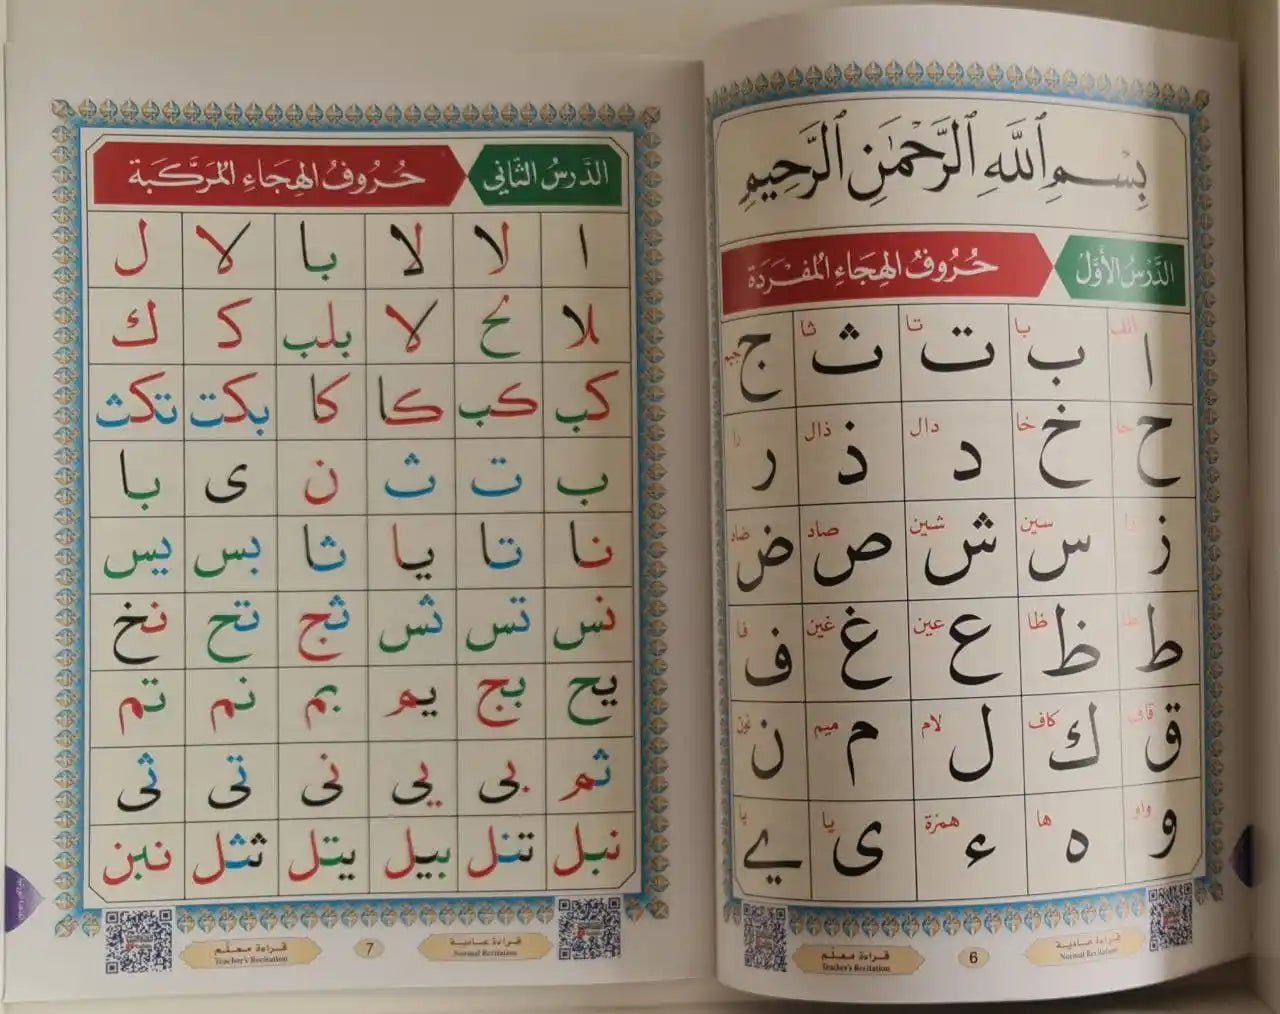 بِسْمِ ٱللَّهِ ٱلرَّحْمَٰنِ ٱلرَّحِيمِ
الدَّرْسُ الأَوَّلُ حُرُوفُ الهِجَاءِ المُفْرَدَة
ا ألف ب با ت تا ث ثا ج جيم
ح حا خ خا د دال ذ ذال ر را
ز زا س سين ش شين ص صاد ض ضاد
ط طا ظ ظا ع عين غ غين ف فا
ق قاف ك كاف ل لام م ميم ن نون
و واو ه ها ء همزة ى يا ے يا
قراءة عادية
Normal Recitation
6
قراءة معلم
Teacher's Recitation
الدَّرسُ الثَّاني حُرُوفُ الهِجَاءِ المُرَكَّبَة
ا لا لا با لا ل
بلا لح لا بلب ك ك
كب كب كا كا بكت تكث
ب ت ث ن ى با
نا تا يا ثا بس يس
نس تس ثس ثج تح نخ
يح بج يم بم نم تم
ثم بى يى نى تى ثى
نبل تنل بيل يتل ثثل نبن
قراءة عادية
Normal Recitation
7
قراءة معلم
Teacher's Recitation